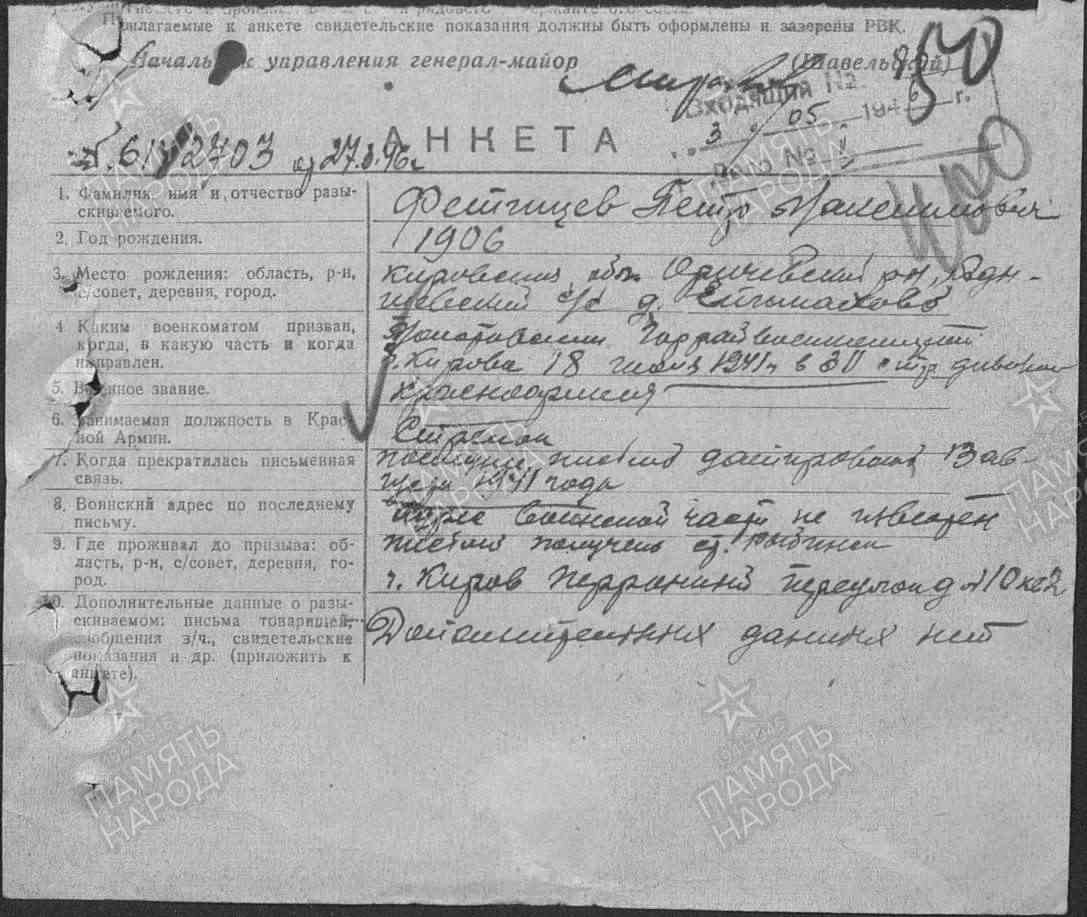 Прилагаемые к анкете свидетельские показания должны быть оформлены и заверены РВК.
Начальник управления генерал-майор (Шавельский)
Входящий №
3 05 1946 г.
АНКЕТА
61/12703 от 27.3.46г
1. Фамилия, имя и отчество разы-
скиваемого.
Петр Максимович
2. Год рождения.
1906
3. Место рождения: область, р-н,
с/совет, деревня, город.
Кировская обл. Оричевский рн,
с/с д.
4. Каким военкоматом призван,
когда, в какую часть и когда
направлен.
Горрайвоенкоматом
г. Кирова 18 1941г в 311 стр. дивизию
5. Военное звание.
Красноармеец
6. Занимаемая должность в Крас-
ной Армии.
Стрелок
7. Когда прекратилась письменная
связь.
письмо датировано 13 ав-
густа 1941 года
8. Воинский адрес по последнему
письму.
Адрес воинской части не известен
письмо получено ст. Рыбинск
9. Где проживал до призыва: об-
ласть, р-н, с/совет, деревня, го-
род.
г. Киров переулок д №10 кв 2
10. Дополнительные данные о разы-
скиваемом: письма товарищей,
сообщения в/ч., свидетельские
показания и др. (приложить к
анкете).
Дополнительных данных нет
ПАМЯТЬ
НАРОДА
ПАМЯТЬ
НАРОДА